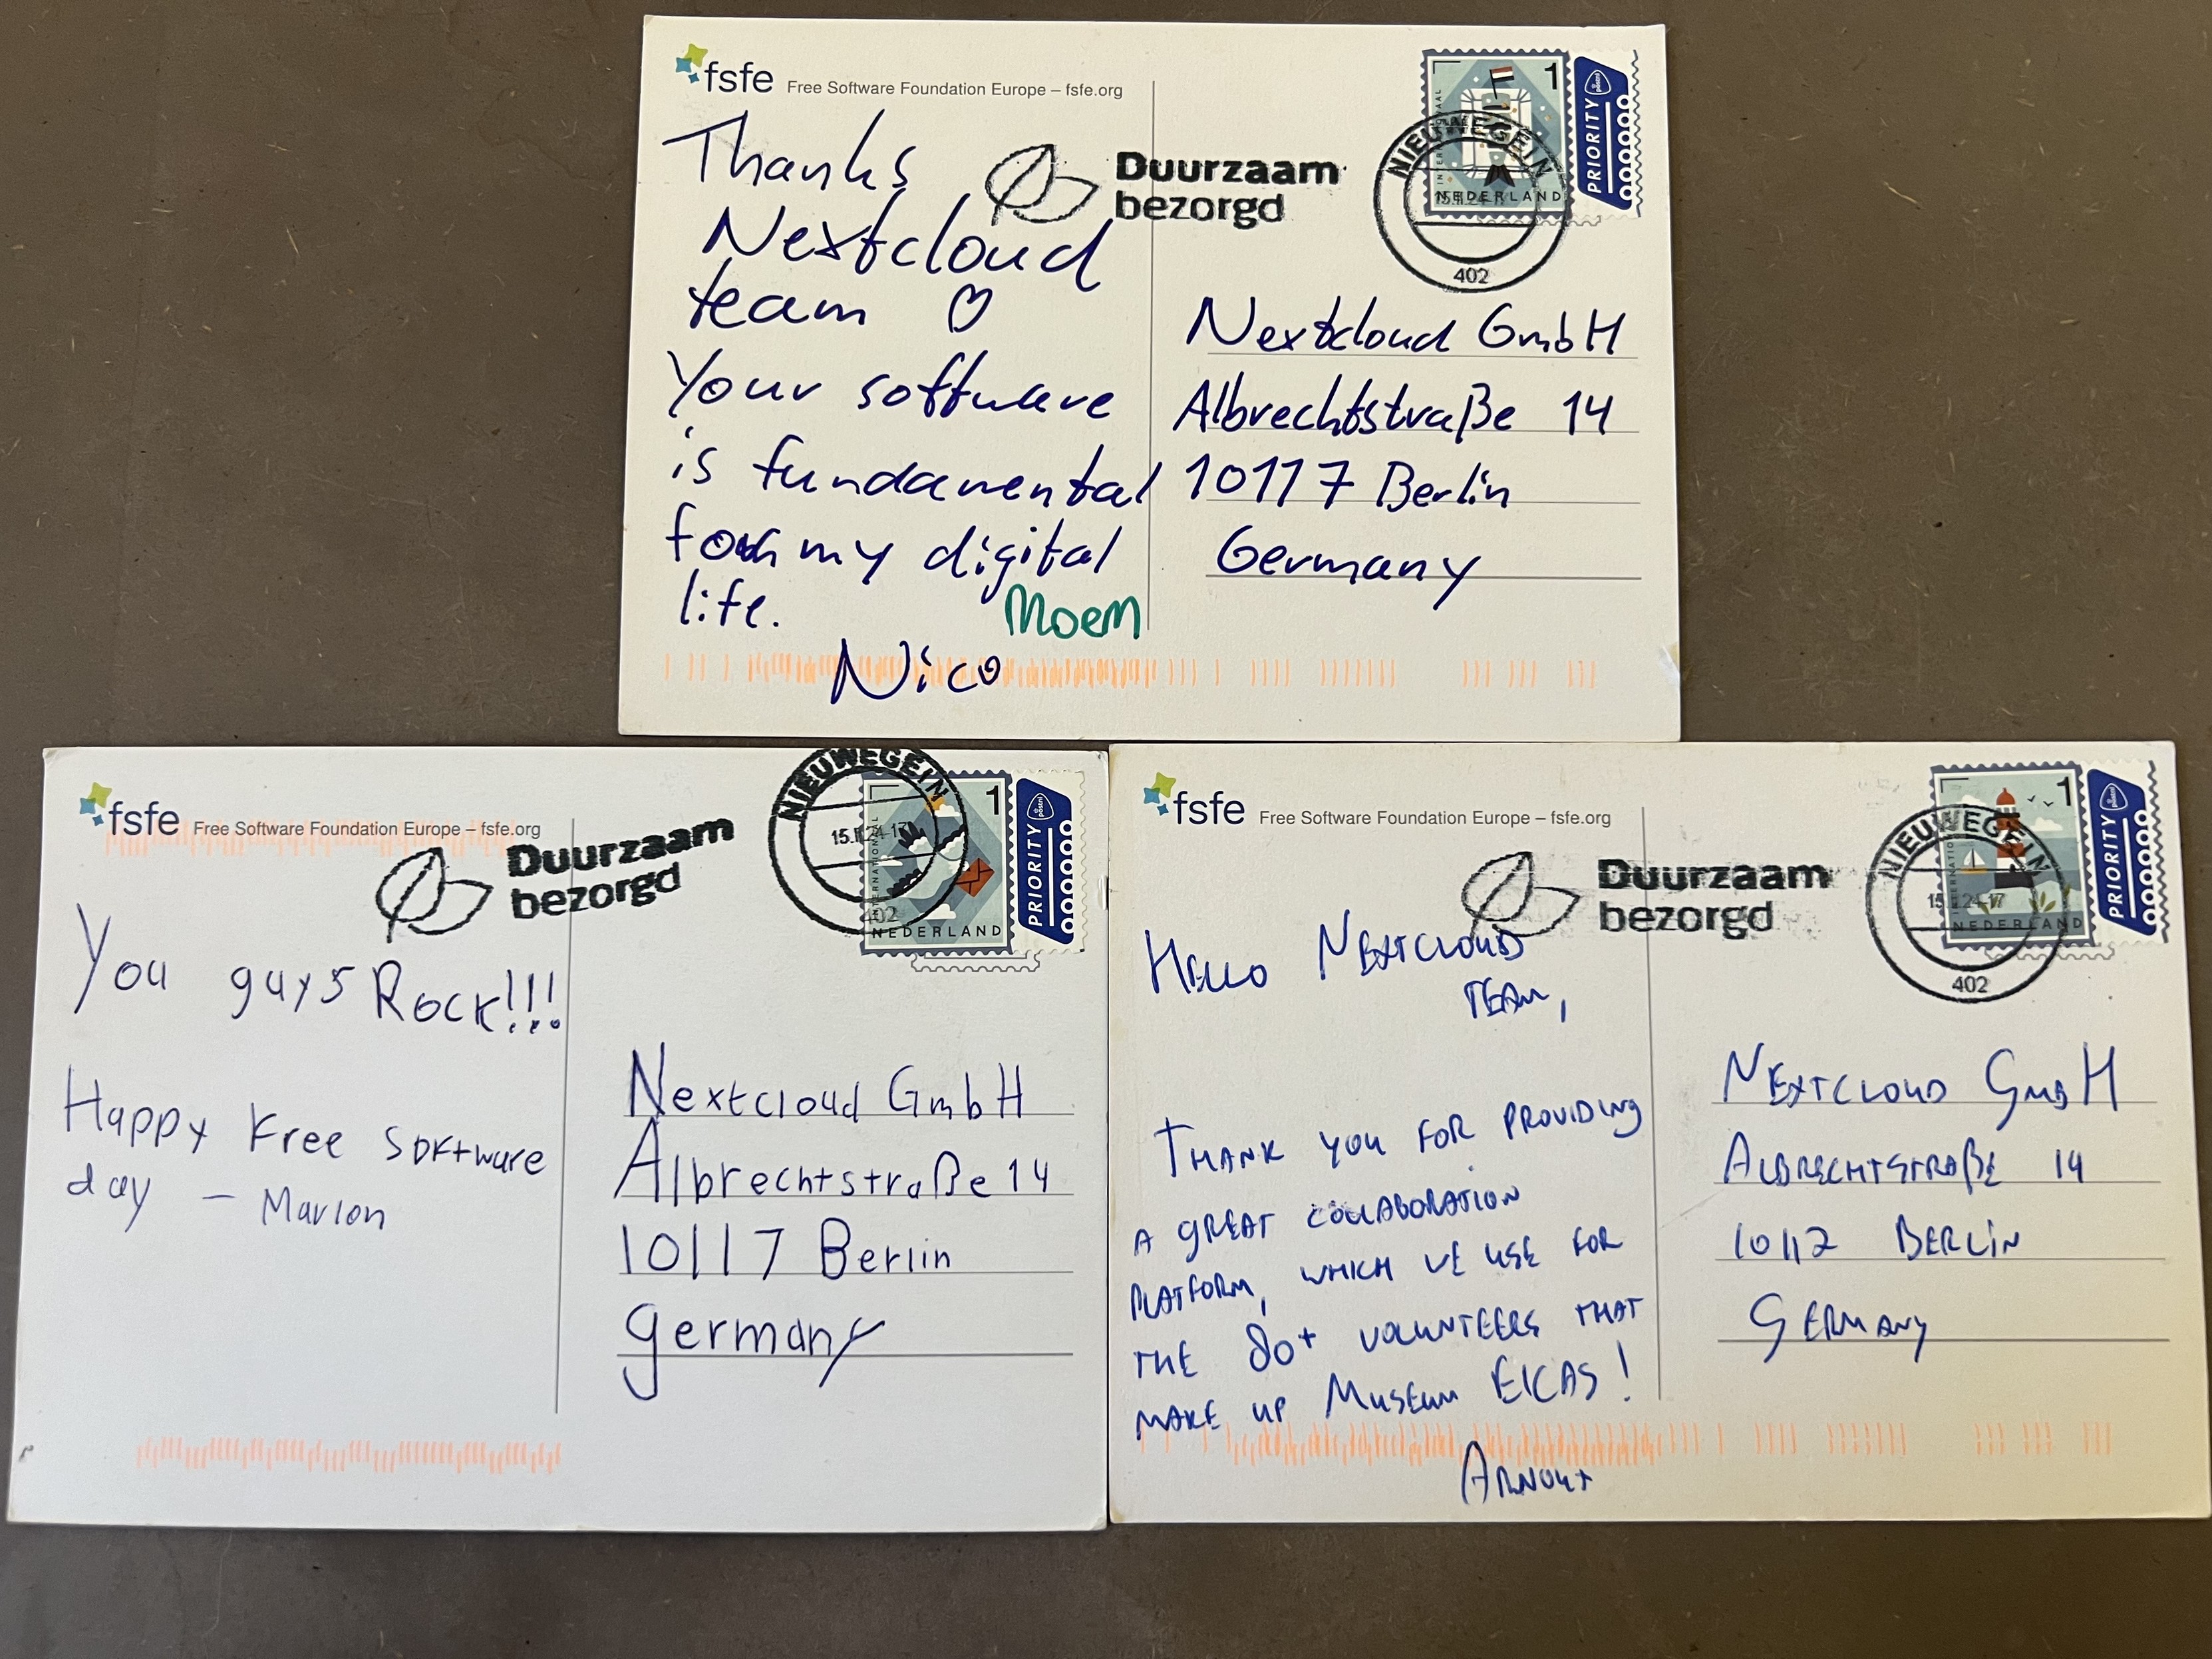 fsfe Free Software Foundation Europe – fsfe.org
Thanks
Nextcloud
team ♡
Your software
is fundamental
for my digital
life.
Moem
Nico
Duurzaam
bezorgd
NIEUWEGEIN
402
1
INTERNATIONAAL
NEDERLAND
PRIORITY
postnl
Nextcloud GmbH
Albrechtstraße 14
10117 Berlin
Germany
fsfe Free Software Foundation Europe – fsfe.org
Duurzaam
bezorgd
NIEUWEGEIN
402
1
NEDERLAND
PRIORITY
postnl
You guys Rock!!!
Happy Free Software
day – Marlon
Nextcloud GmbH
Albrechtstraße 14
10117 Berlin
germany
fsfe Free Software Foundation Europe – fsfe.org
Duurzaam
bezorgd
NIEUWEGEIN
402
1
NEDERLAND
PRIORITY
postnl
HELLO NEXTCLOUD
TEAM,
THANK YOU FOR PROVIDING
A GREAT COLLABORATION
PLATFORM, WHICH WE USE FOR
THE 80+ VOLUNTEERS THAT
MAKE UP MUSEUM EICAS!
ARNOUT
NEXTCLOUD GMBH
ALBRECHTSTRAßE 14
10117 BERLIN
GERMANY